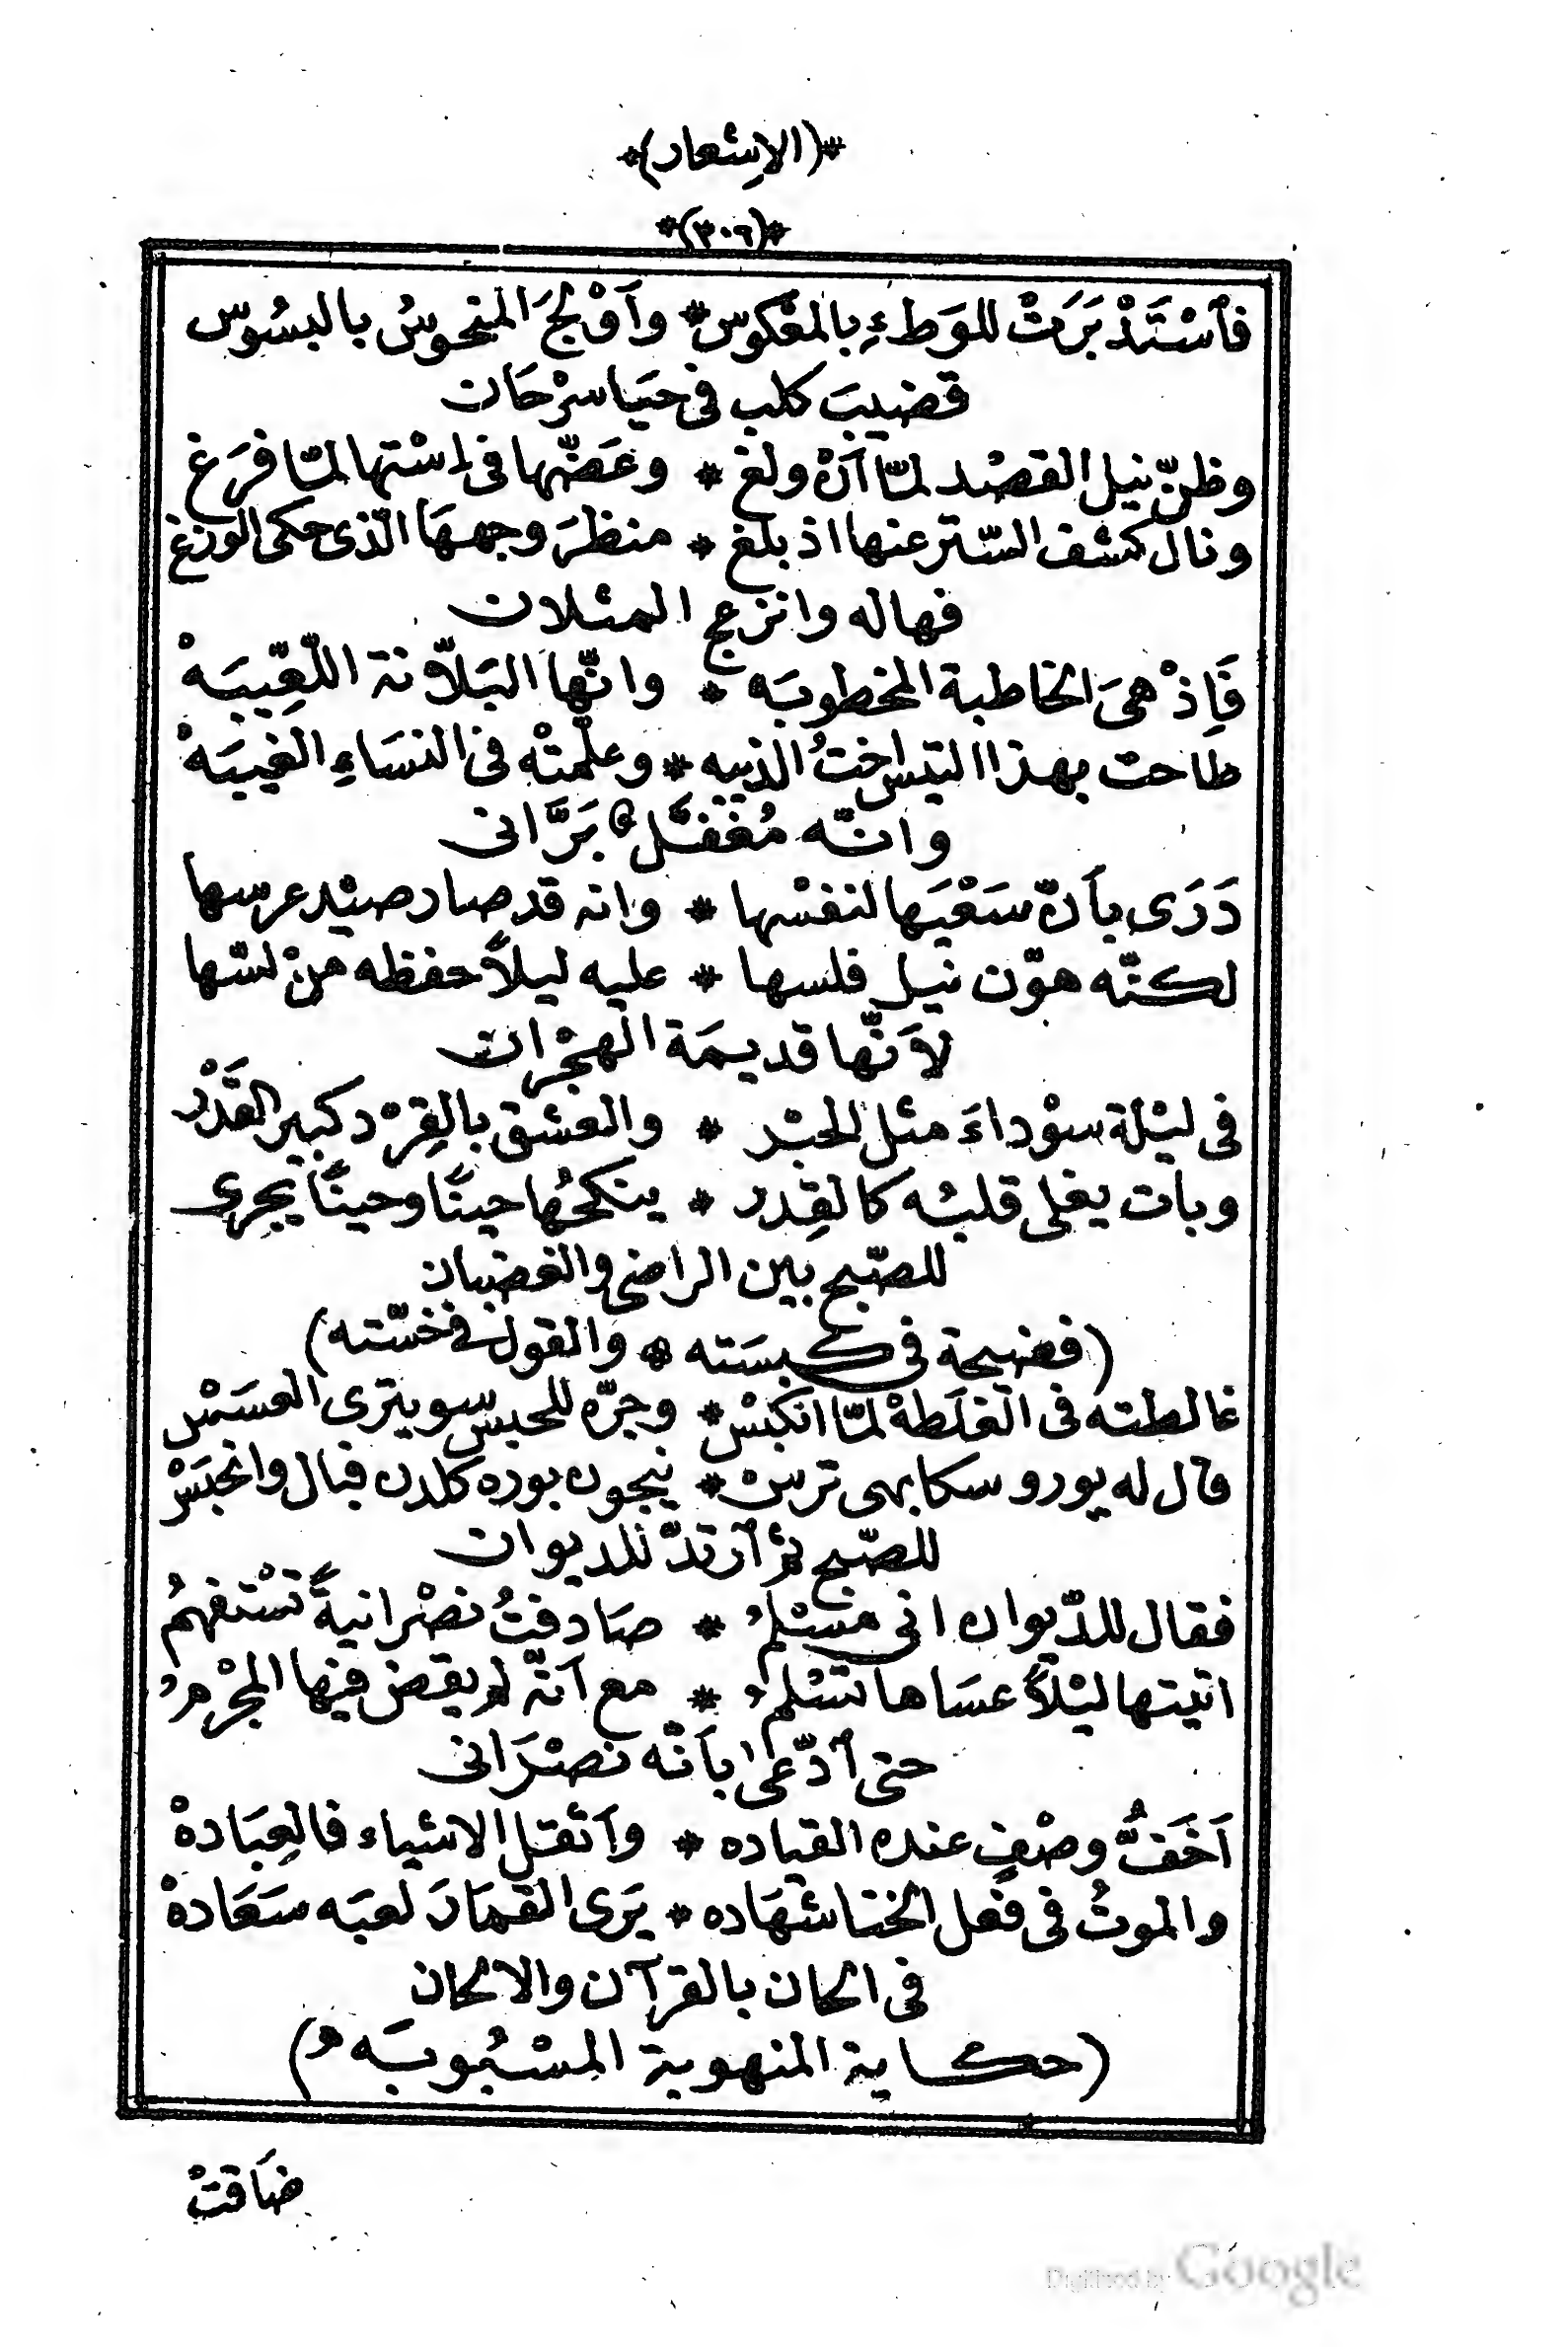 *(الاِشعار)*
*(٣٠٦)*
فاَسْتَدْبَرَتْ للوَطءِ بالمَعْكوس * واَوْلجَ المنحوسُ بالبسُوس
قضيبَ كلب فى حيَا سرْحَان
وظنّ نيل القصْد لمّا آنْ ولغ * وعَضّها فى اسْتها لمّا فرَغ
ونال كشف السّتر عنها اذ بلغ * منظرَ وجههَا الّذى حكى الوزغ
فهاله وانزعج المثلان
فَاِذْ هىَ الخاطبة المخطوبَه * وانّها البَلاّنة اللّعّيبَهْ
طاحت بهذا التيس اختُ الذيبه * وعلّمتْه فى النسَاءِ الغيبَهْ
وانّه مُغفّل بَرَّانى
دَرَى باَنّ سَعْيَها لنفسْها * وانه قد صار صيْد عرسها
لكنّه هوّن نيل فلسها * عليه ليلاً حفظه منْ لسّها
لاَنّها قديمَة الهجْران
فى ليْلة سوْداءَ مثل الحبْر * والعشق بالقِرْد كبير القَدْر
وبات يغلى قلبُه كالقِدر * ينكحُها حينًا وحينًا يجرِى
للصّبح بين الراضى والغضبان
(فضيحة فى كبسَته * والقول فى خسّته)
غالطته فى الغلَطهْ لمّا انكبسْ * وجرّه للحبس سوبتزى العسَسْ
قال له يورو سكا بهى ترس * نيجون بوره كلدن فبال وانحبَسْ
للصّبح ثم اَرتدّ للديوان
فقال للدّيوان انى مسْلمُ * صَادفتُ نصْرانيةً تسْتفهمُ
اتيتها ليْلاً عسَاها تسْلمُ * مع اَنّه لم يقض فيها المجْرمُ
حتى اَدّعى باَنّه نصْرَانى
اَخَفُّ وصْفٍ عنده القياده * واَثقل الاشياء فالعِبَادهْ
والموتُ فى فعل الخنا شهَاده * يَرَى القمَارَ لعبَه سَعَادهْ
فى الحان بالقرآن والالحان
(حكاية المنهوبة المسْبُوبَه)
ضَاقتْ
Digitized by Google